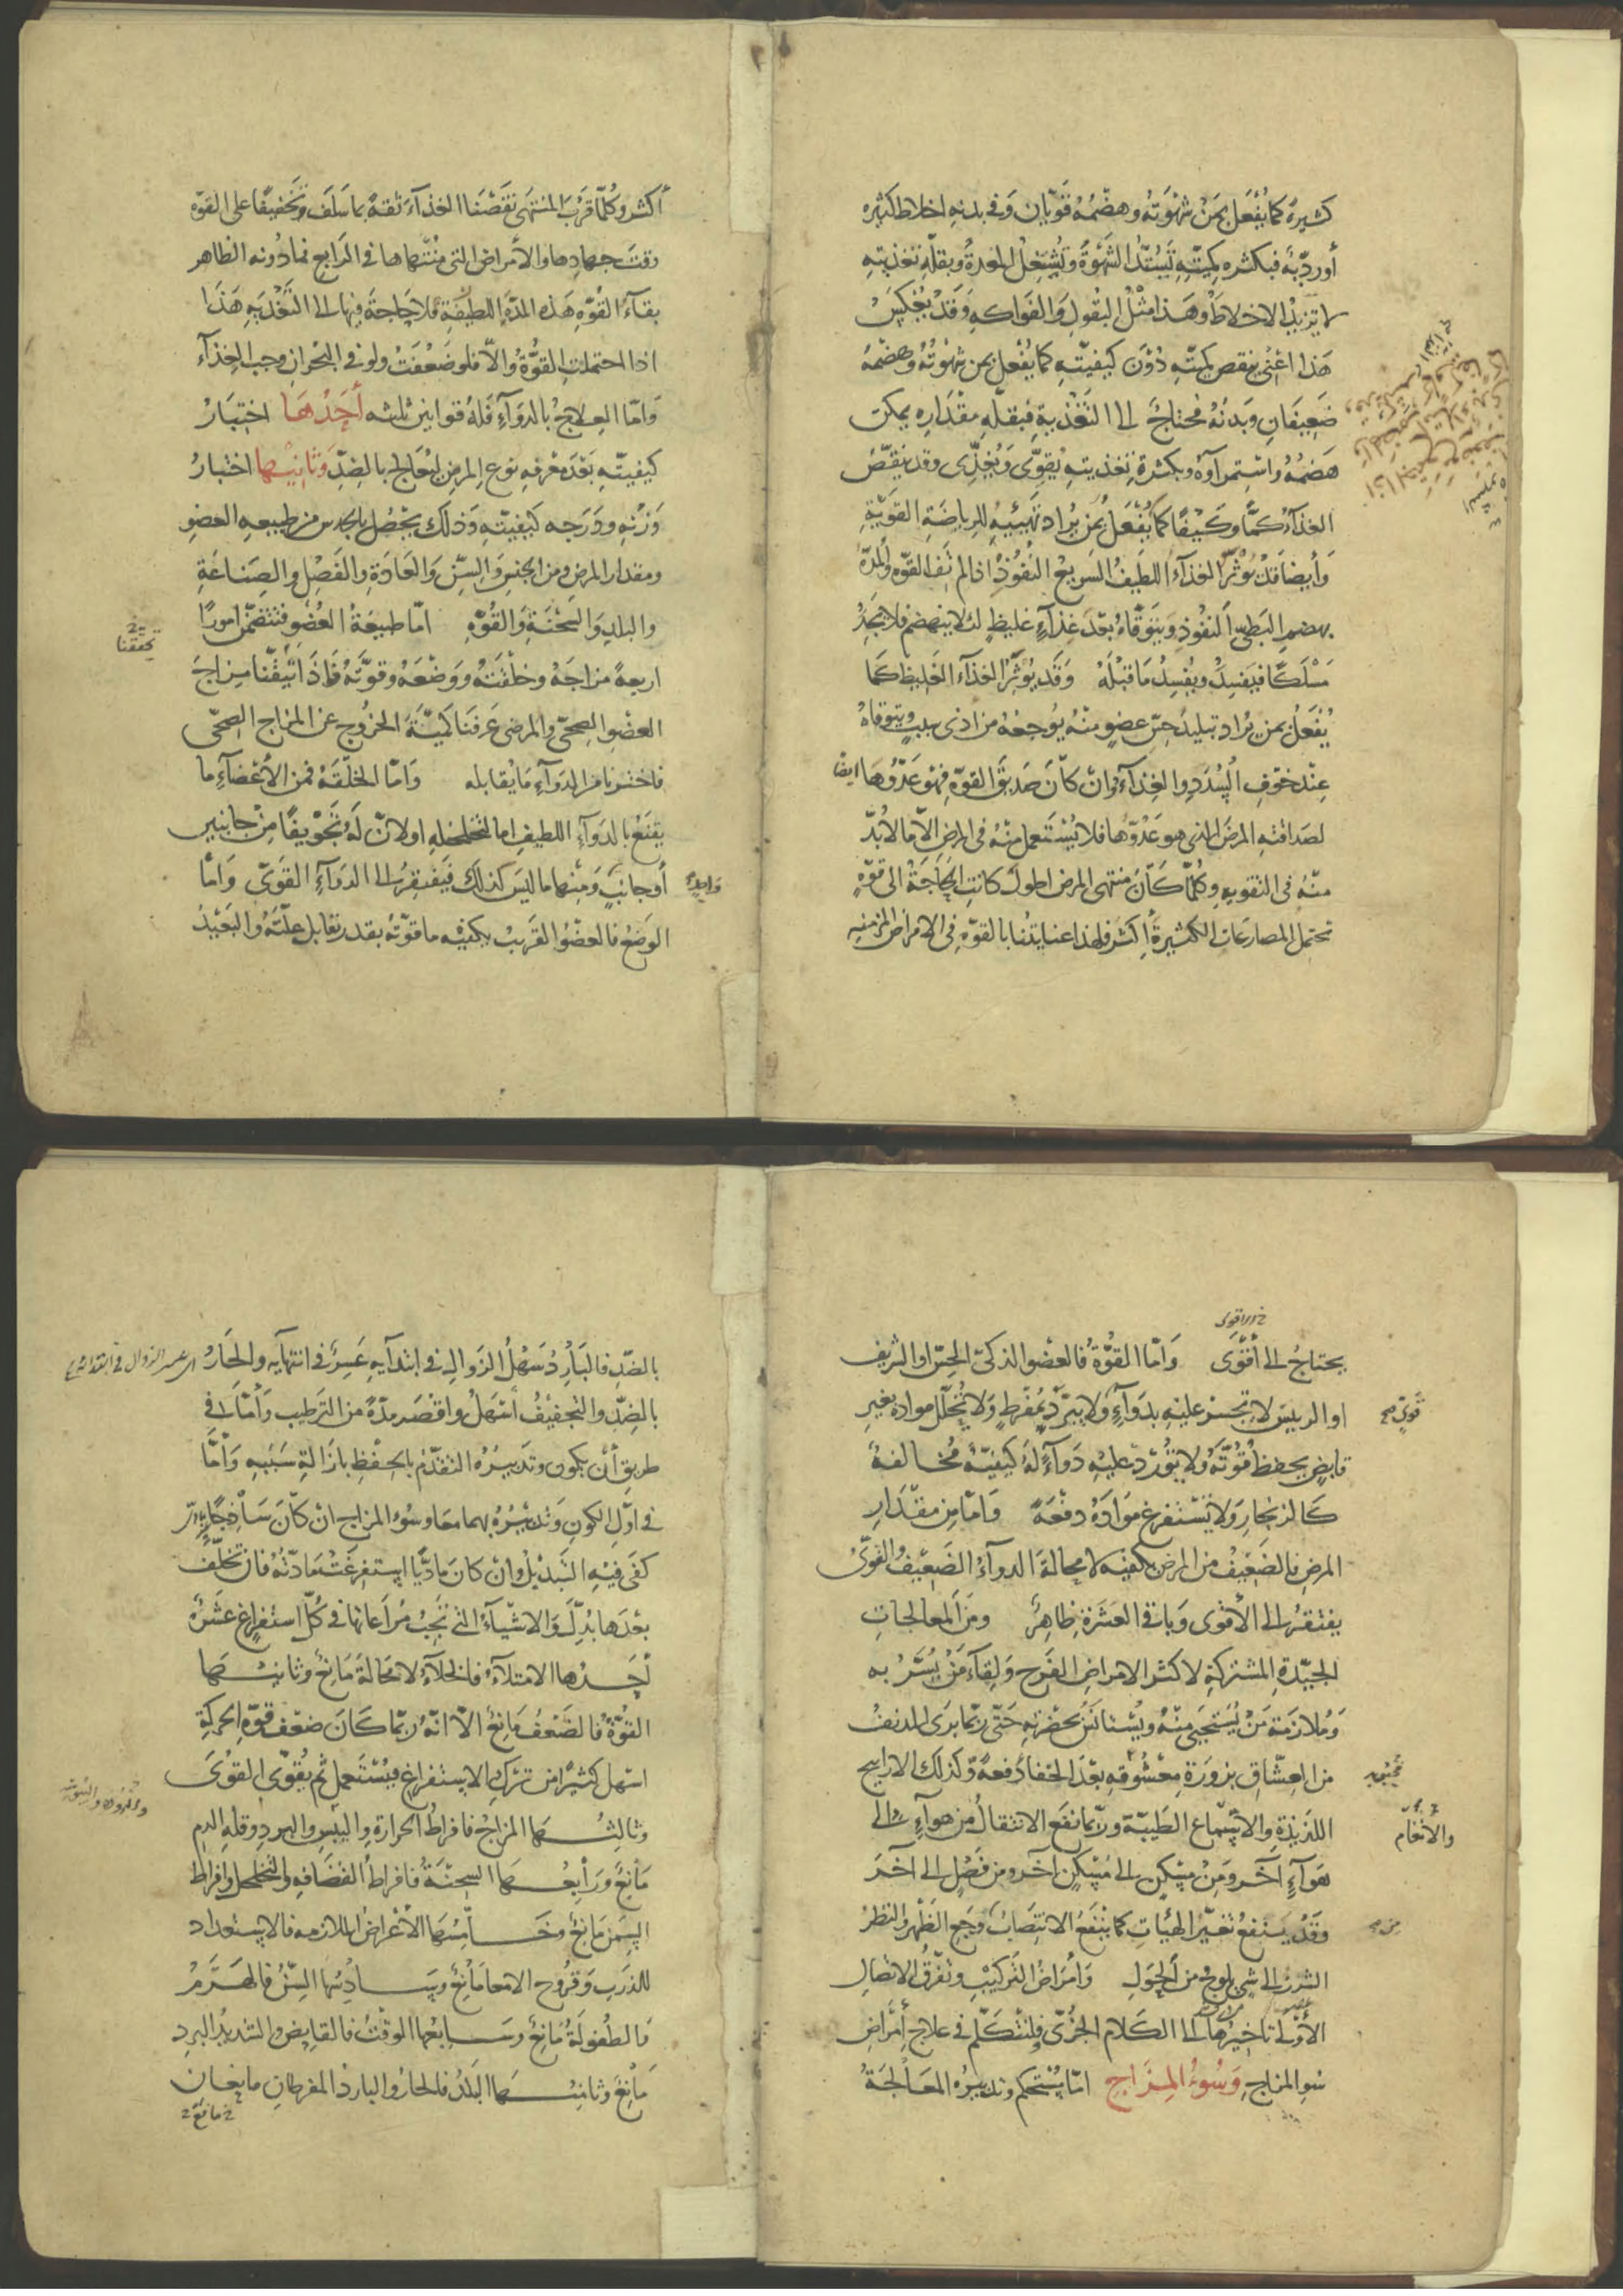 كثيرة كما يُفعل بمن شهوته وهضمه قويان وفي بدنه اخلاط كثيره
أو رديّه فبكثره كميّته تسُدّ الشهوة وتُشغل المعدة وبقلّة تغذيته
لا تزيد الاخلاط وهذا مثل البقول والفواكه وقد يُعكس
هذا اعني ينقص كميّته دون كيفيّته كما يُفعل بمن شهوته وهضمه
ضعيفان وبدنه محتاج الى التغذية فبقلّة مقداره يمكن
هضمه واستمراؤه وبكثرة تغذيته يقوّى ويُغذّى وقد ينقص
الغذاء كمّا وكيفا كما يُفعل بمن يُراد تهيئته للرياضة القويّة
وأيضا قد يُؤثر الغذاء اللطيف السريع النفوذ اذا لم تف القوّه والمدّة
بهضم البطيّ النفوذ ويتوقّاه بعد غذاء غليظ لئلا ينهضم فلا يجد
مسلكا فيفسد ويفسد ما قبله وقد يُؤثر الغذاء الغليظ كما
يُفعل بمن يُراد تبليد حسّ عضو منه يوجعه من اذى سبب ويتوقاه
عند خوف السُدد والغذاء وان كان صديق القوّه فهو عدوّها ايضا
لصداقته المرض الذي هو عدوّها فلا يُستعمل منه في المرض الاّ ما لا بُدّ
منه في التقويه وكلّما كان منتهى المرض اطول كانت الحاجة الى قوّه
تحتمل المصارعات الكثيرة أكثر فلهذا عنايتنا بالقوّه في الامراض المزمنه
أكثر وكلّما قرب المنتهى نقصنا الغذاء ثقة بما سلف وتخفيفا على القوّه
وقت جهادها والأمراض التي منتهاها في الرابع فما دونه الظاهر
بقاء القوّه هذه المدّة اللطيفة فلا حاجة فيها الى التغذيه هذا
اذا احتملت القوّة والاّ فلو ضعفت ولو في البحران وجب الغذاء
وامّا العلاج بالدواء فله قوانين ثلثه أحدها اختيار
كيفيّته بعد معرفه نوع المرض ليُعالج بالضدّ وثانيها اختيار
وزنه ودرجه كيفيّته وذلك يحصل بالحدس من طبيعه العضو
ومقدار المرض ومن الجنس والسنّ والعادة والفصل والصناعة
والبلد والسحنة والقوّه امّا طبيعة العضو فتتضمّن امورًا
اربعةً مزاجه وخلقته ووضعه وقوّته فاذا تيقّنا مزاج
تحققنا
العضو الصحّي والمرضى عرفنا كميّة الخروج عن المزاج الصحّي
فاخترنا من الدواء ما يقابله وامّا الخلقة فمن الأعضاء ما
يقنع بالدواء اللطيف اما لتخلخله او لانّ له تجويفا من جانبين
أو جانب ومنها ما ليس كذلك فيفتقر الى الدواء القويّ وامّا
واحد
الوضع فالعضو القريب يكفيه ما قوّته بقدر تقابل علّته والبعيد
يحتاج الى أقوى وامّا القوّة فالعضو الذكيّ الحسّ او الشريف
او الرئيس لا تجسر عليه بدواء ولا يبرّد بمفرط ولا تُحلّل مواده بغير
قويّ صح
قابض يحفظ قوّته ولا تُورد عليه دواء له كيفيّة مخالفة
كالزنجار ولا تستفرغ موادّه دفعة وامّا من مقدار
المرض فالضعيف من المرض يكفيه لا محالة الدواء الضعيف القويّ
يفتقر الى الأقوى وباقي العشرة ظاهر ومن المعالجات
الجيّدة المشتركة لاكثر الامراض الفرح ولقاء من يُسَرّ به
وملازمة من يُستحيى منه ويُستانس بحضرته حتى ربّما برئ المدنف
من العشّاق بزورة معشوقه بعد الجفا دفعة وكذلك الاراييح
اللذيذة والاسماع الطيّبة وربّما نفع الانتقال من هواء الى
والأنغام
هواء آخر ومن مسكن الى مسكن آخر ومن فصل الى آخر
وقد ينفع تغيّر الهيات كما ينفع الانتصاب وجع الظهر والنظر
الشزر الى شيء يلوح من الحول وامراض التركيب وتفرّق الاتصال
الأولى تاخيرها الى الكلام الجزئي فلنتكلّم في علاج أمراض
سُو المزاج وسُوء المزاج امّا يُستحكم وتدبيره المعالجة
بالضدّ فالبارد سهل الزوال في ابتدايه عسر في انتهايه والحارّ
بالضدّ والتجفيف أسهل واقصر مدّة من الترطيب وأمّا في
طريق أن يكون وتدبيره التقدّم بالحفظ بازالة سببه وأمّا
في اوّل الكون وتدبيره بهما معا وسوء المزاج ان كان ساذجا
كفى فيه التبديل وان كان ماديّا استفرغت مادّته فان تخلّف
بعدها بُدّل والاشياء التي تجب مراعاتها في كلّ استفراغ عشرة
أحدها الامتلاء فالخلاء لا محالة مانع وثانيها
القوّة فالضعف مانع الاّ انّه ربّما كان ضعف قوّة الحركة
اسهل كثيرًا من ترك الاستفراغ فيستعمل ثم يُقوّى القوى
وثالثها المزاج فافراط الحرارة واليبس والبرد وقلة الدم
مانع ورابعها السحنة فافراط القضافه والتخلخل وافراط
السمن مانع وخامسها الأعراض اللازمه فالاستعداد
للذرب وقروح الامعا مانع وسادسها السنّ فالهرم
والطفولة مانع وسابعها الوقت فالقايض والشديد البرد
مانع وثامنها البلد فالحار والبارد المفرطان مانعان
مانع